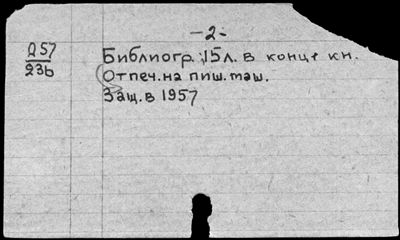 -2-
Д57
236
Библиогр. 15 л. в конце кн.
Отпеч. на пиш. маш.
Защ. в 1957